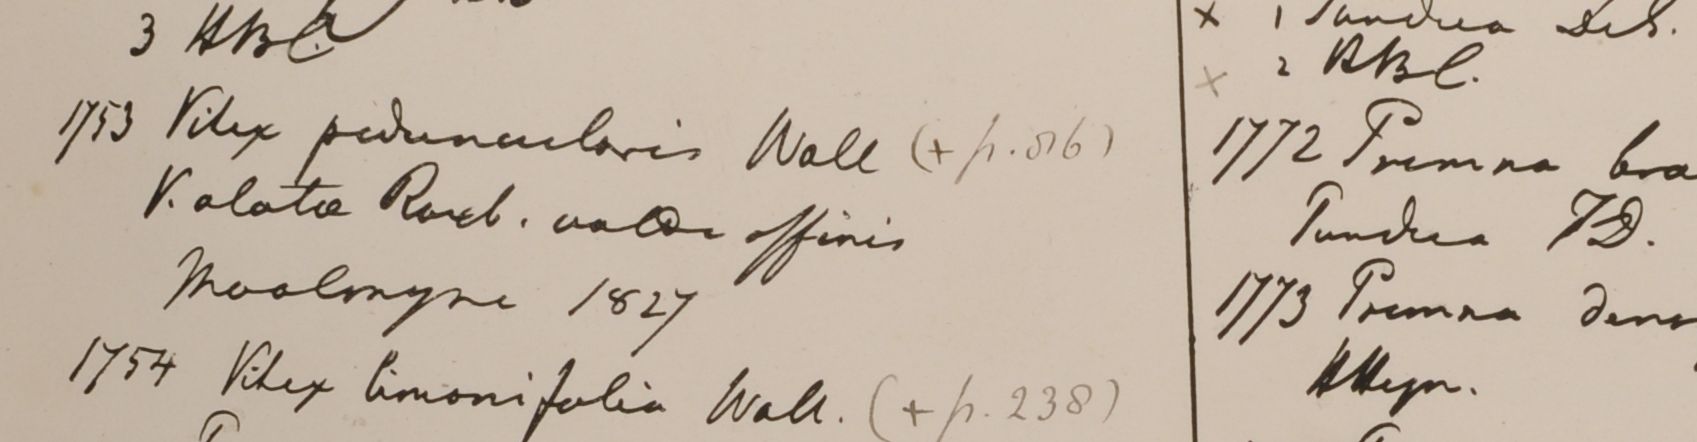 3 HBC
1753 Vitex peduncularis Wall (+ p. 86)
V. alatae Roxb. valde affinis
Moalmyne 1827
1754 Vitex limonifolia Wall. (+ p. 238)
x 1 Pundua
x 2 HBC.
1772 Premna bra
Pundua FD.
1773 Premna dens
HHeyn.